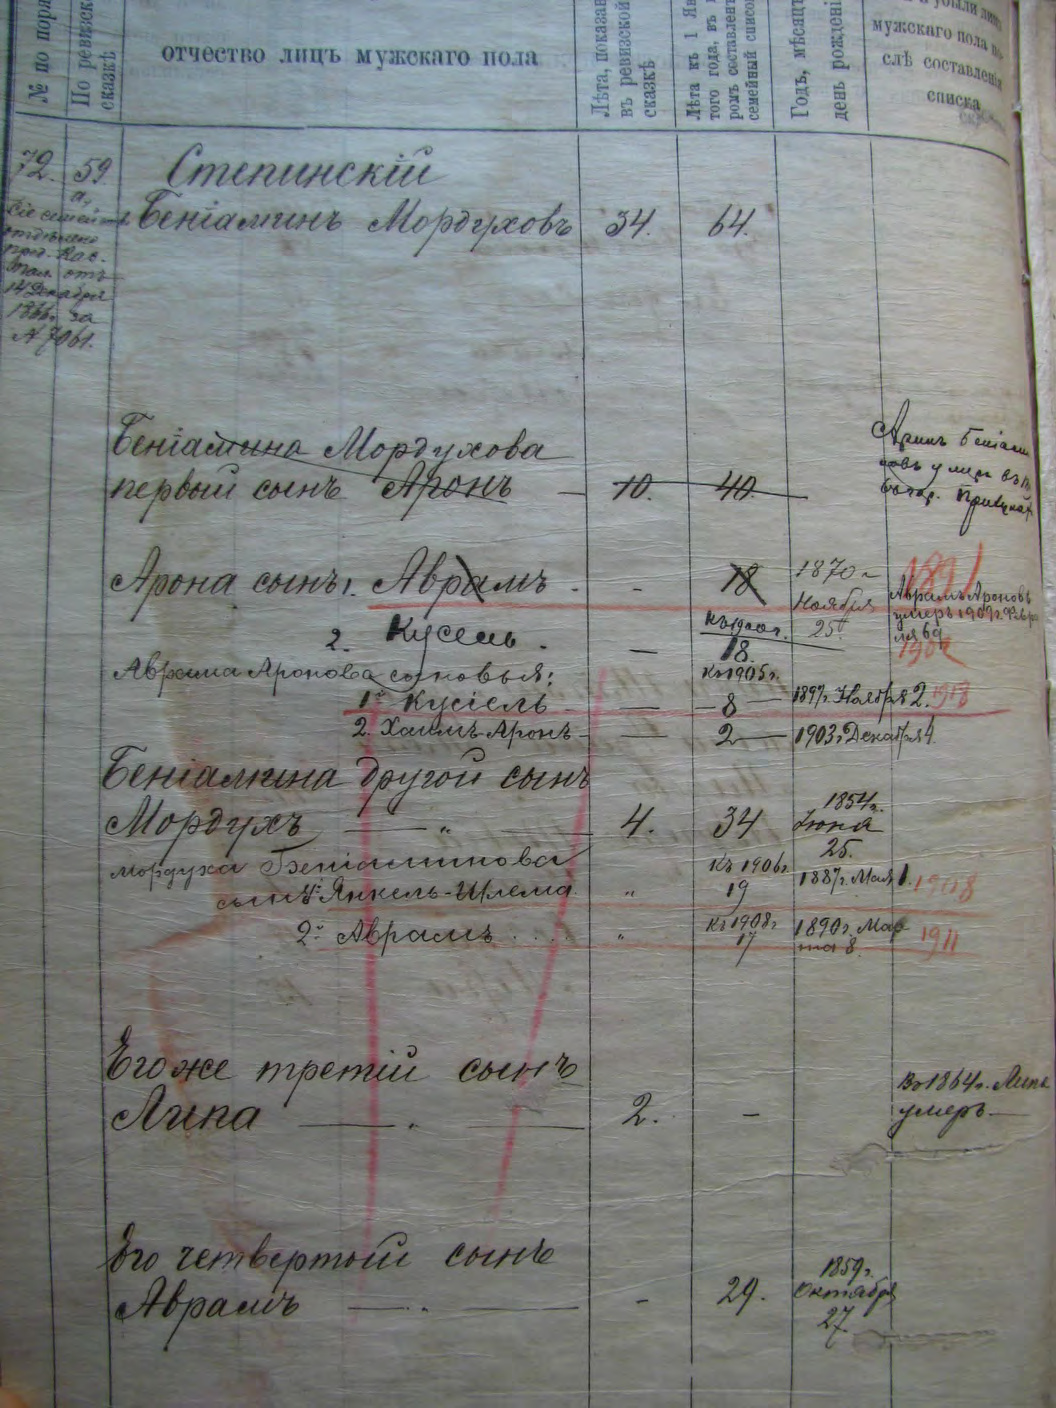 № по поря
По ревизск
сказкѣ
отчество лицъ мужскаго пола
Лѣта, показан
въ ревизской
сказкѣ
Лѣта къ 1 Ян
того года, въ
ромъ составлен
семейный списо
Годъ, мѣсяцъ
день рожденi
убыли лиц
мужскаго пола по
слѣ составленiя
списка
72. 59 Степинскiй
а,
Бенiаминъ Мордуховъ 34. 64.
Сiе семейст
отдѣлено
пред. Каз.
Пал. отъ
14 Декабря
1866г. за
№ 7061.
Бенiамина Мордухова
первый сынъ Аронъ 10. 40.
Аронъ Бенiами
новъ умеръ въ
Арона сынъ 1. Аврамъ - - 18 1870 г
Ноября
25.
1891
Аврамъ Ароновъ
умеръ 1909г. Февра
ля 6д
2. Кусель. — къ 1920 г.
18.
1902
Аврама Аронова сыновья: къ 1905 г.
1й Кусiель — 8 — 1897г. Ноября 2. 1918
2. Хаимъ-Аронъ — 2 — 1903г. Декабря 4
Бенiамина другой сынъ
Мордухъ — " — 4. 34 1854 г.
Iюня
25.
Мордуха Бенiаминова
сынъ 1й Янкель-Шлема " къ 1906г.
19 1887г. Мая 1. 1908
2й Аврамъ . . . " къ 1908г
17 1890г. Мар
та 8. 1911
Его же третiй сынъ
Липа — " — 2. — Въ 1864г. Липа
умеръ —
Его четвертый сынъ
Аврамъ — " — - 29. 1859 г.
Октября
27